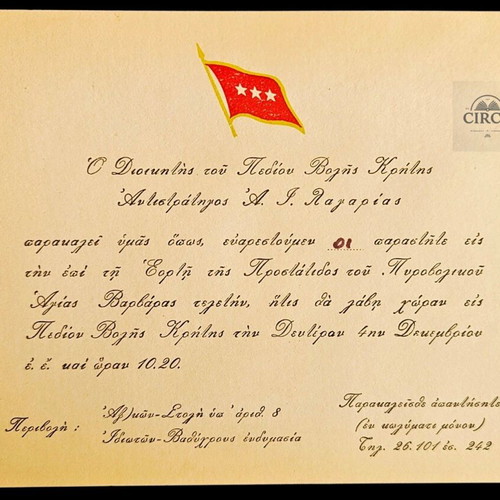 CIRC
Ὁ Διοικητὴς τοῦ Πεδίου Βολῆς Κρήτης
Ἀντιστράτηγος Ἀ. Ι. Λαγαρίας
παρακαλεῖ ὑμᾶς ὅπως, εὐαρεστούμεν οι παραστῆτε εἰς
τὴν ἐπὶ τῇ Ἑορτῇ τῆς Προστάτιδος τοῦ Πυροβολικοῦ
Ἁγίας Βαρβάρας τελετήν, ἥτις θὰ λάβῃ χώραν εἰς
Πεδίον Βολῆς Κρήτης τὴν Δευτέραν 4ην Δεκεμβρίου
ἐ. ἔ. καὶ ὥραν 10.20.
Περιβολή :
Ἀξ/κῶν-Στολὴ ὑπ' ἀριθ. 8
Ἰδιωτῶν-Βαθύχρους ἐνδυμασία
Παρακαλεῖσθε ἀπαντήσητε
(ἐν κωλύματι μόνον)
Τηλ. 26.101 ἐσ. 242